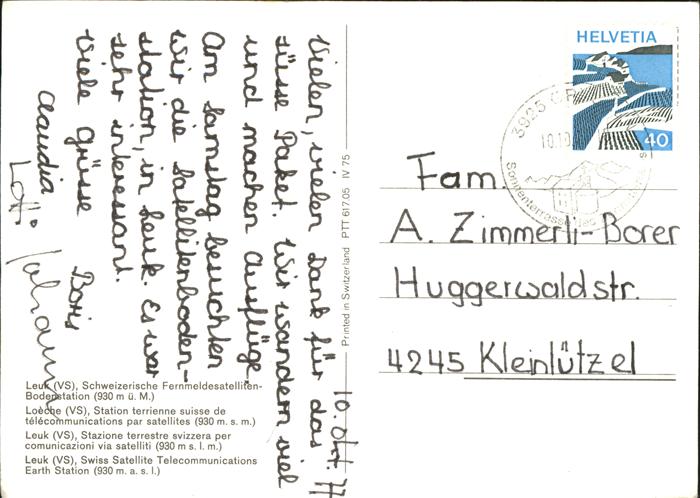 10. Okt. 77
Vielen, vielen Dank für das
süsse Paket. Wir wandern viel
und machen Ausflüge.
Am Samstag besuchten
wir die Satellitenboden-
station, in Leuk. Es war
sehr interessant.
Viele Grüsse Boris
Claudia
Lotti
Leuk (VS), Schweizerische Fernmeldesatelliten-
Bodenstation (930 m ü. M.)
Loèche (VS), Station terrienne suisse de
télécommunications par satellites (930 m. s. m.)
Leuk (VS), Stazione terrestre svizzera per
comunicazioni via satelliti (930 m s. l. m.)
Leuk (VS), Swiss Satellite Telecommunications
Earth Station (930 m. a. s. l.)
Printed in Switzerland PTT 617.05 IV 75
HELVETIA
40
3925
10.10
Sonnenterrasse des
Fam.
A. Zimmerli-Borer
Huggerwaldstr.
4245 Kleinlützel